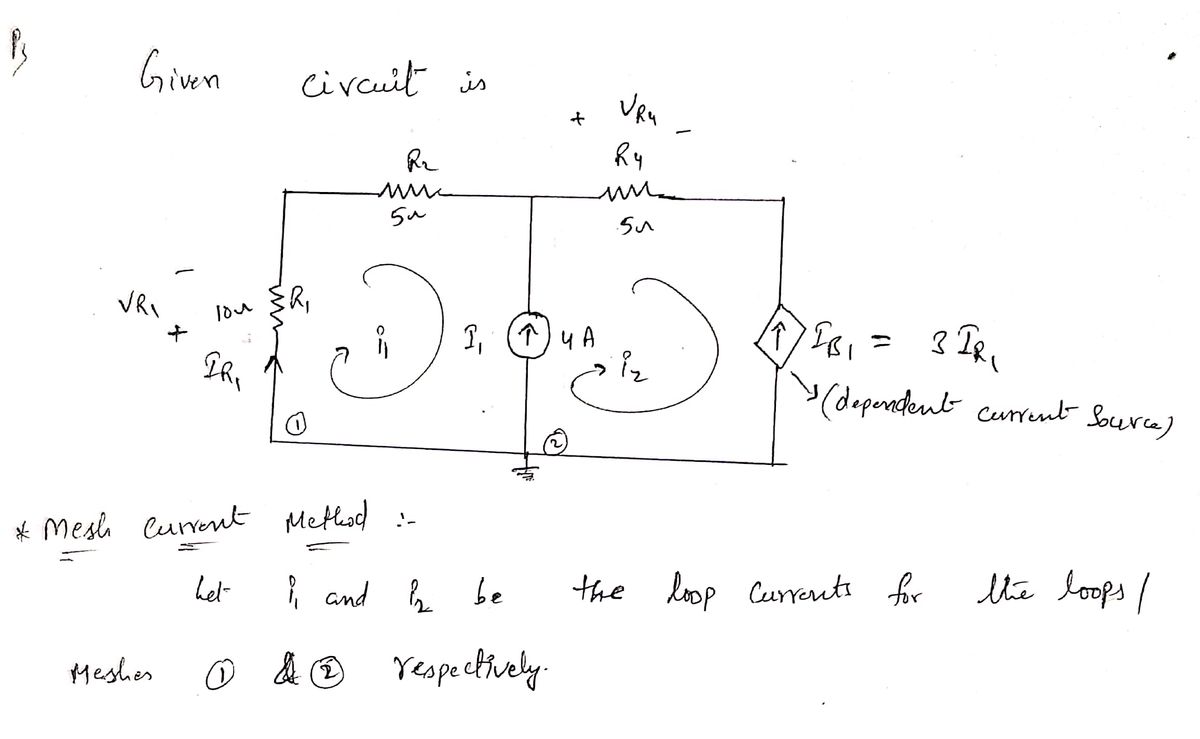 Given circuit is
+ VR4 -
R2
R4
5Ω
5Ω
-
VR1
10Ω
R1
+
IR1
i1
I1
4A
i2
IB1 = 3 IR1
(dependent current source)
①
②
* Mesh Current Method :-
Let i1 and i2 be the loop currents for the loops/
Meshes ① & ② respectively.